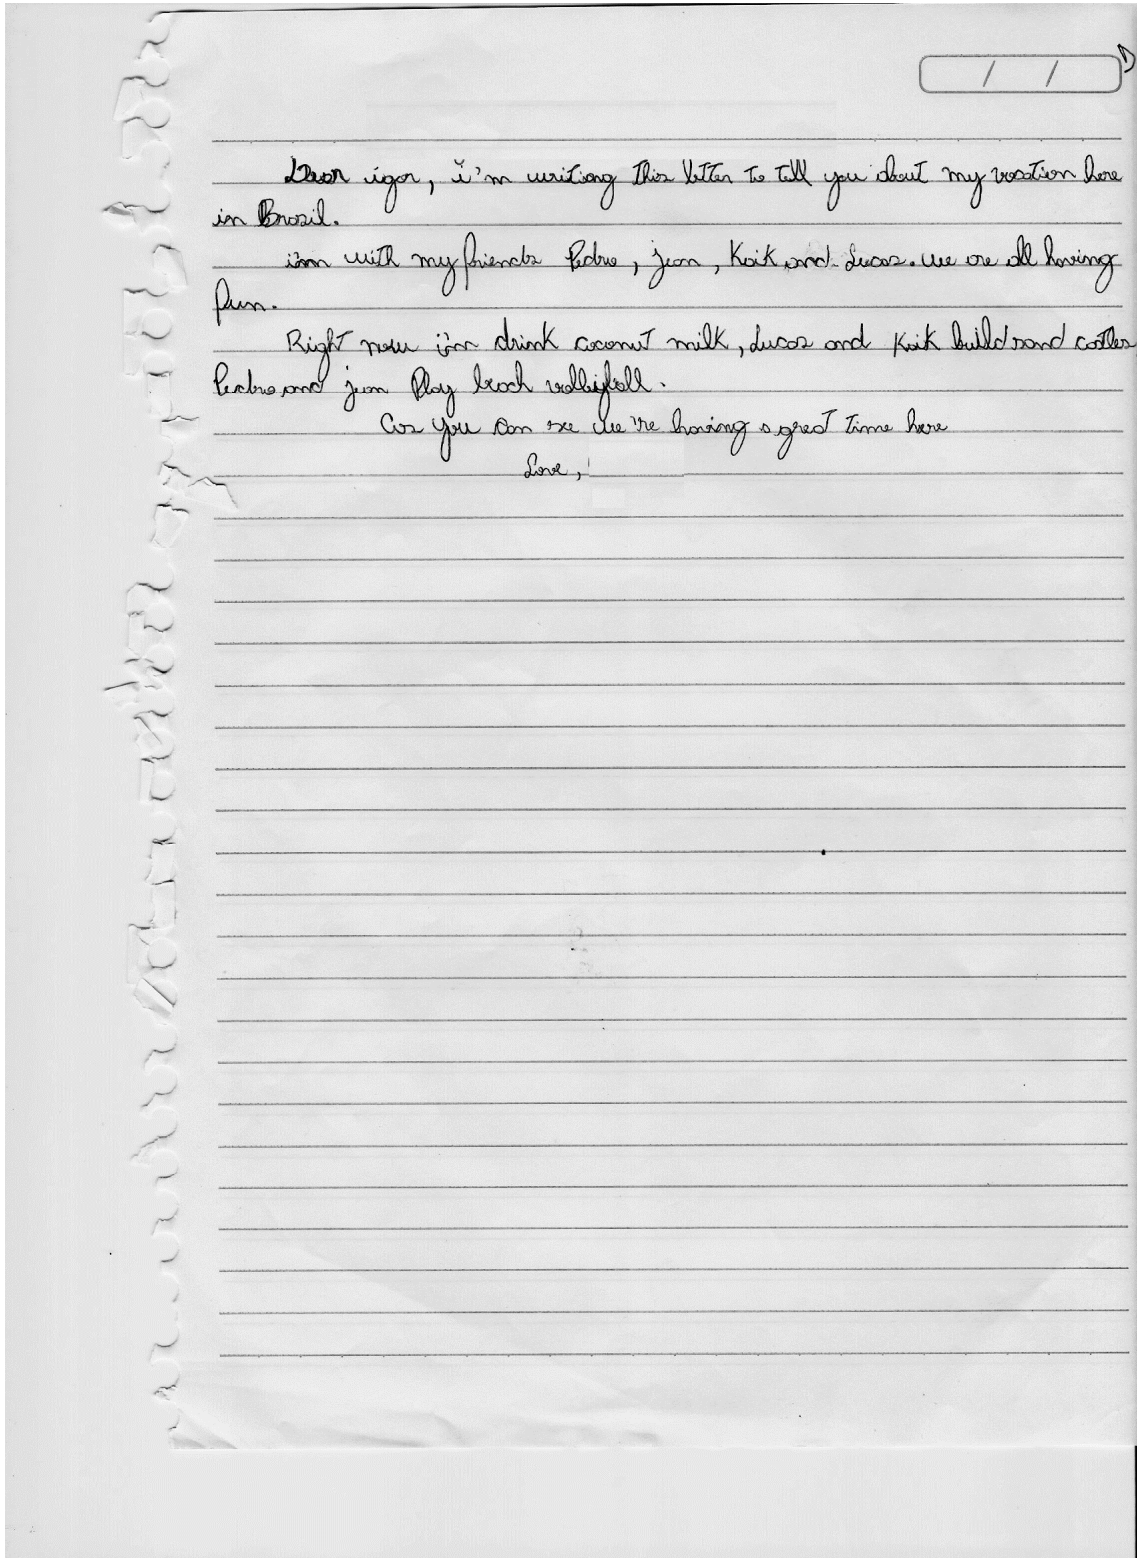 / /
Dear igor, i'm writiong this letter to tell you about my vacation here
in Brazil.
i'm with my friends Pedro, jean, Kaik and Lucas. We are all having
fun.
Right now i'm drink coconut milk, Lucas and Kaik build sand castles
Pedro and jean Play beach volleyball.
As you can see we're having a great time here
Love,